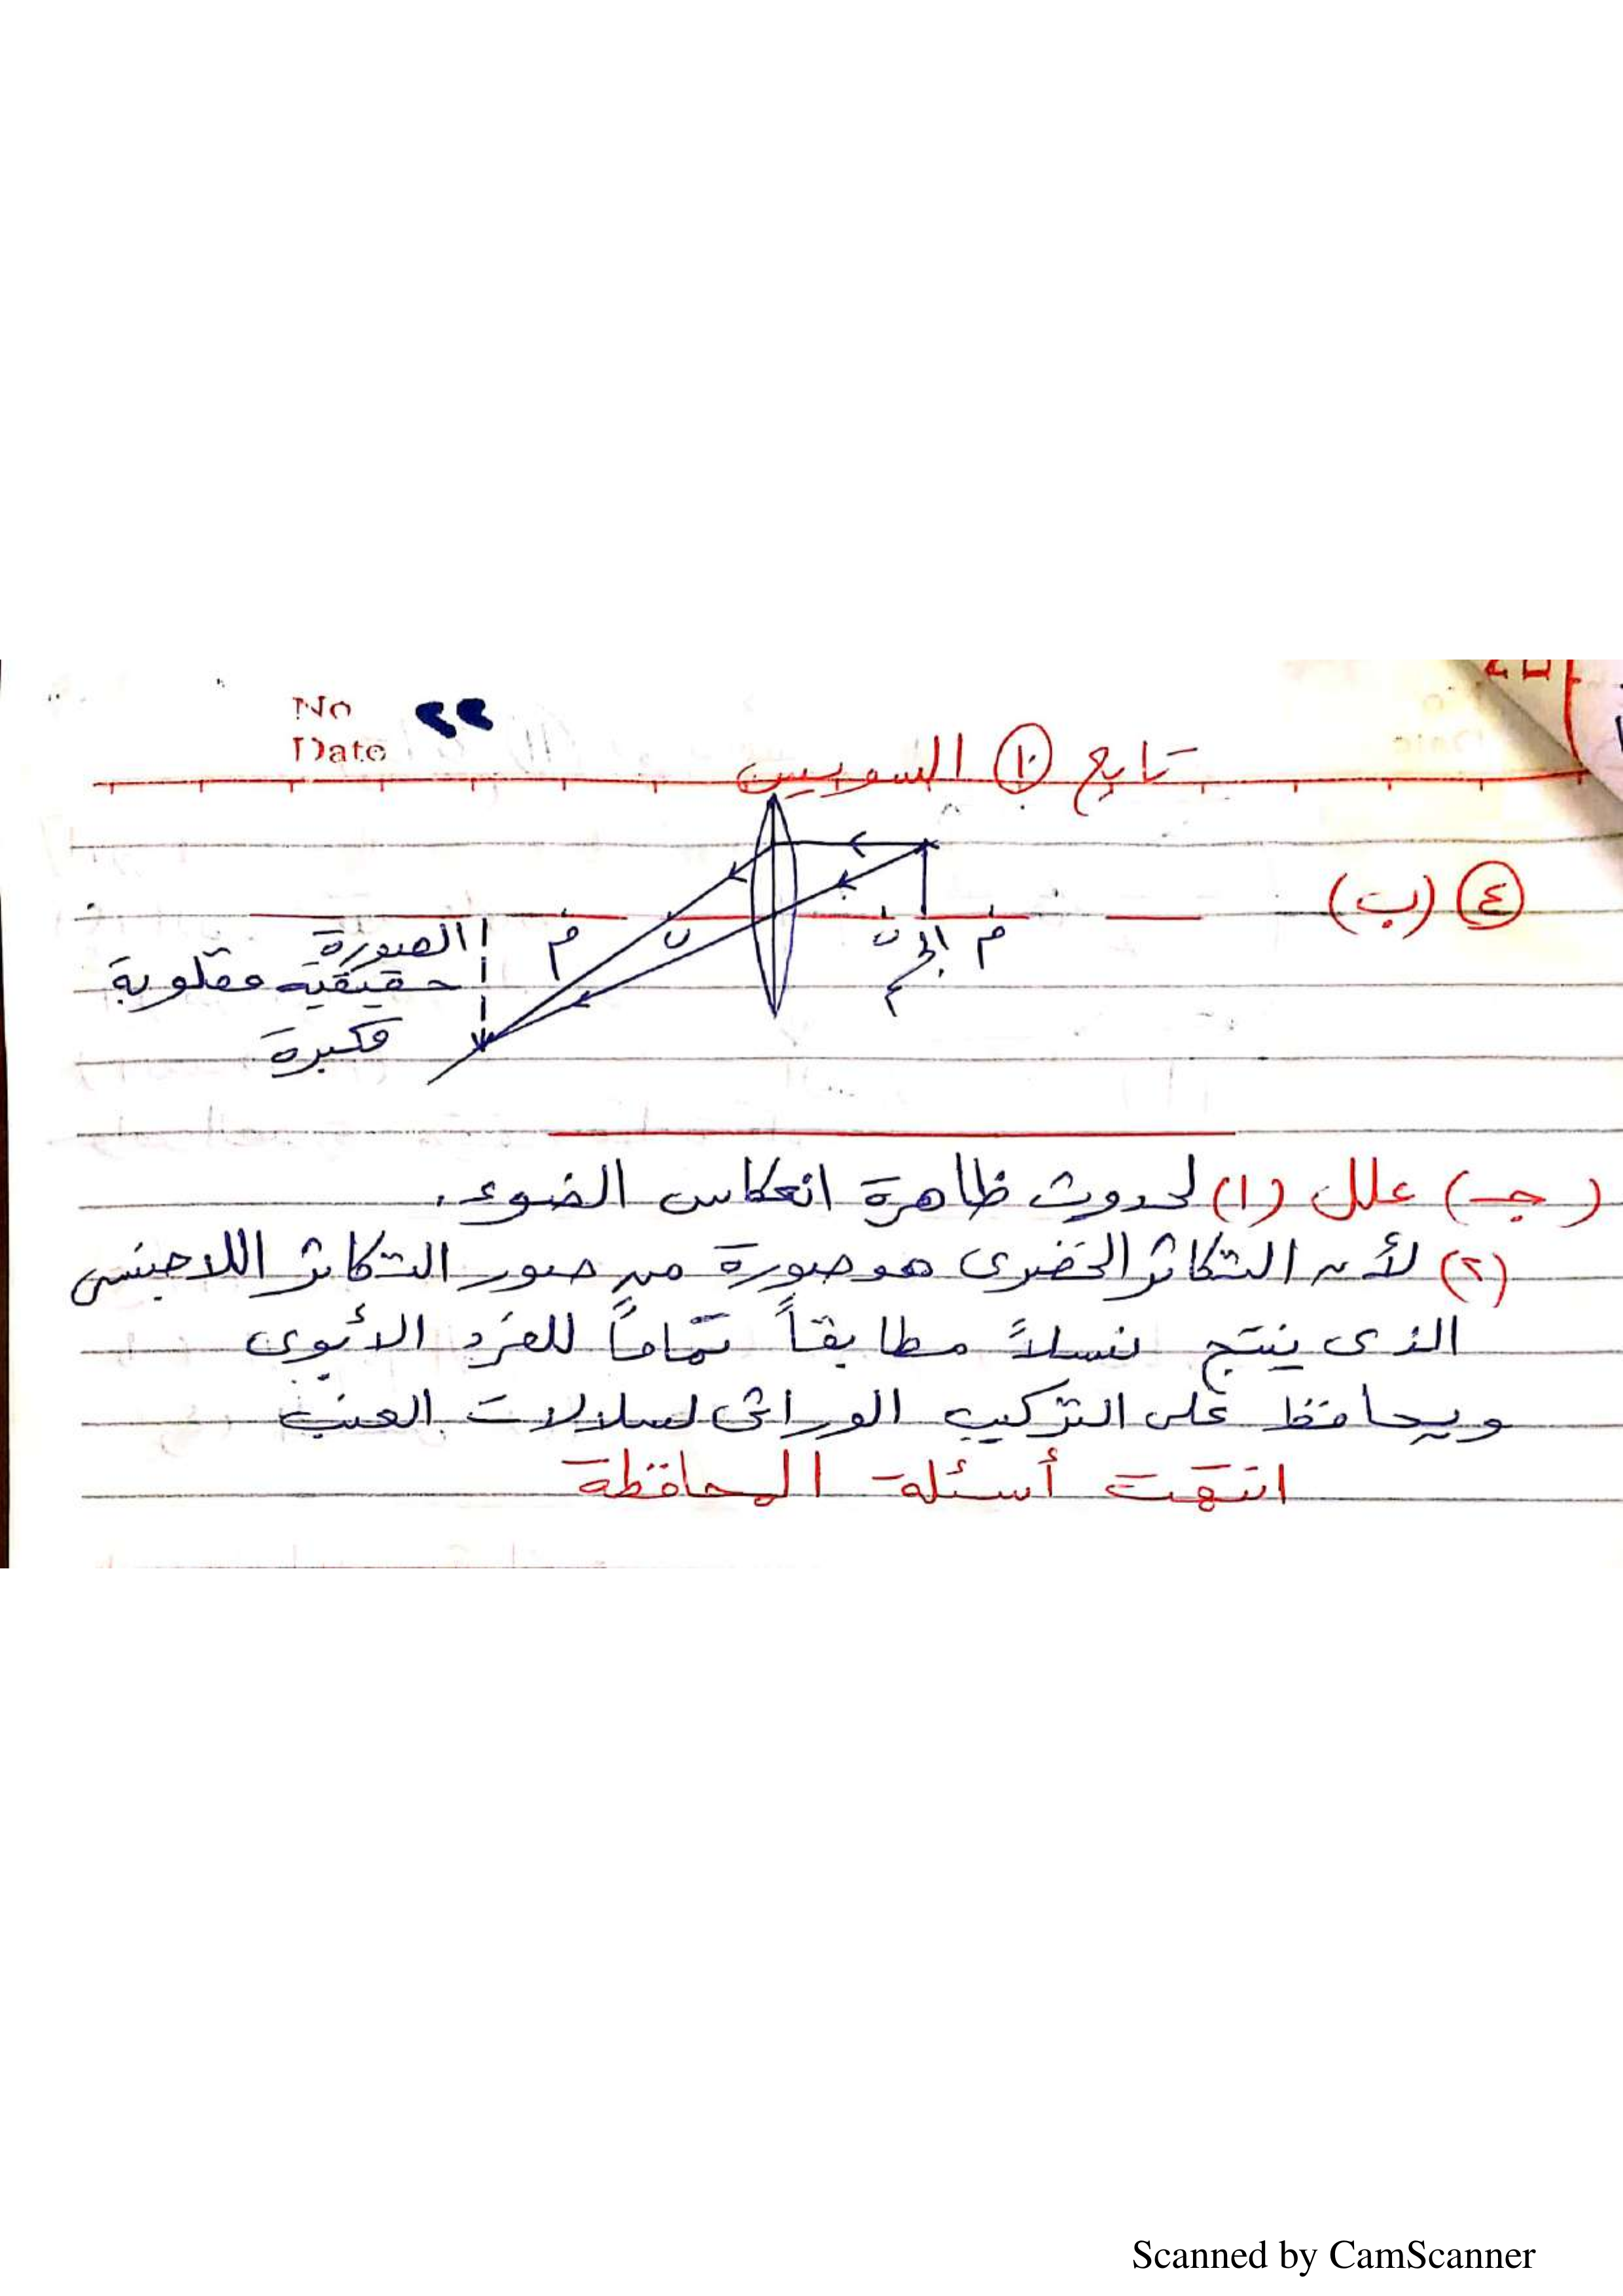 No ٢٢
Date
تابع ١٠ السويس
٤ (ب)
م الجسم ن ن م
الصورة
حقيقية مقلوبة
مكبرة
(جـ) علل (١) لحدوث ظاهرة انعكاس الضوء.
(٢) لأن التكاثر الخضرى هو صورة من صور التكاثر اللاجنسى
الذى ينتج نسلاً مطابقاً تماماً للفرد الأبوى
ويحافظ على التركيب الوراثى لسلالات العنب
انتهت أسئلة المحافظة
Scanned by CamScanner